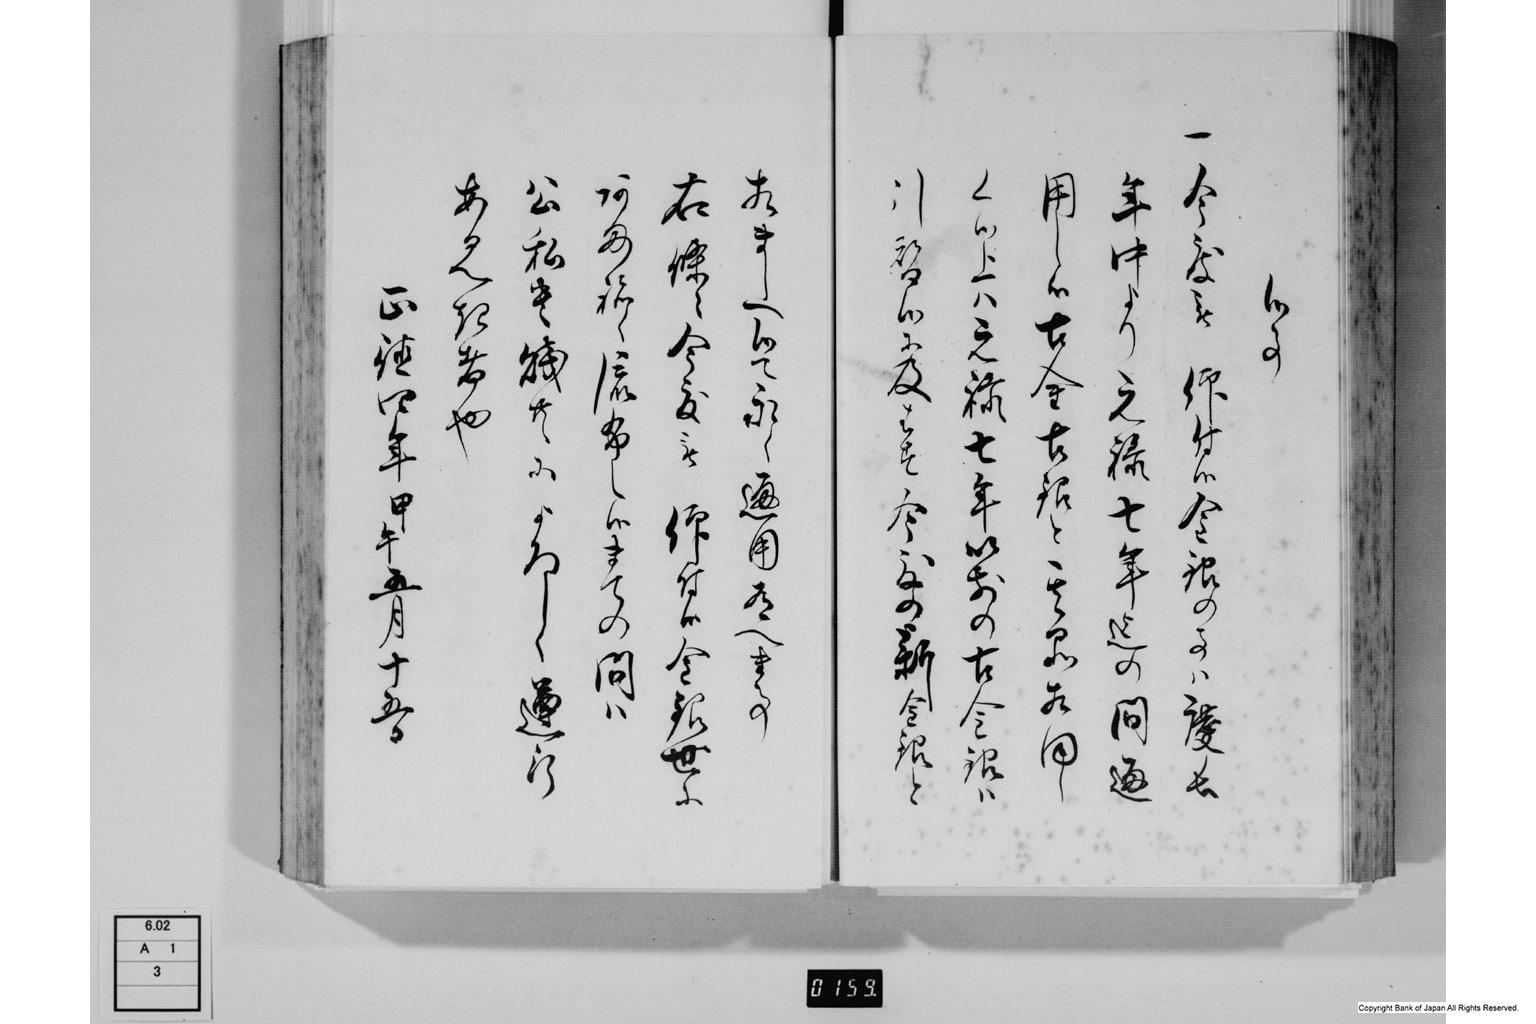 候事
一今度被 仰付候金銀の事ハ慶長
年中より元禄七年迄の間通
用し候古金古銀と其品相同し
く候上ハ元禄七年以前の古金銀ハ
引替候に及はす今度の新金銀と
相ましへ候て永く通用有へき事
右條々今度被 仰付候金銀世に
流布し候まての間ハ
公私貴賤共によろしく遵行
あるへき者也
正徳四年甲午五月十五日
6.02
A 1
3
0159.
Copyright Bank of Japan All Rights Reserved.